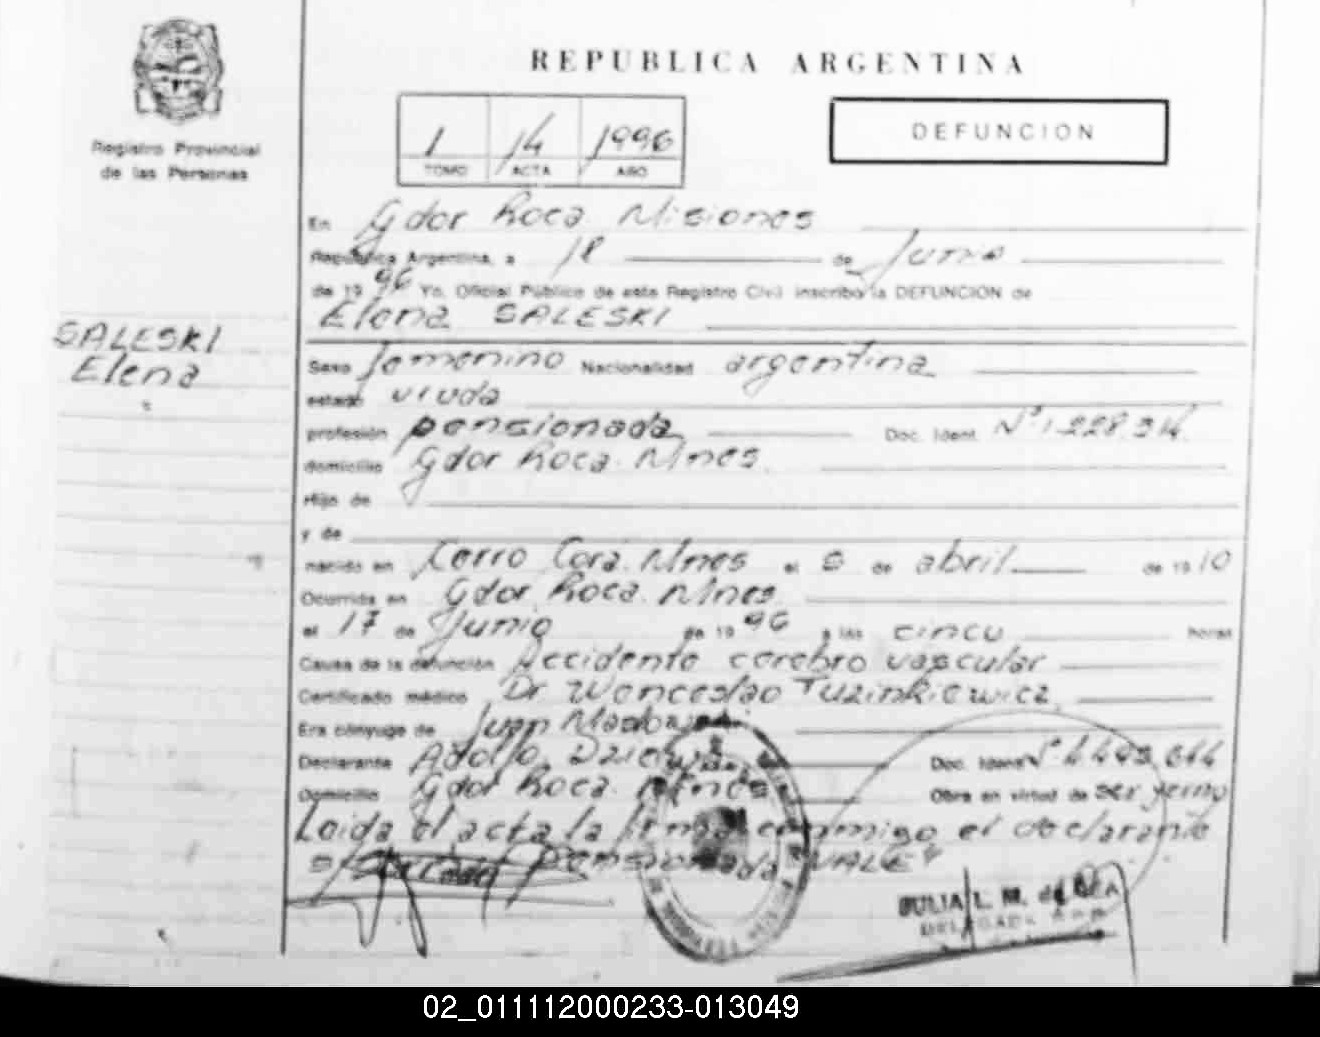 REPUBLICA ARGENTINA
Registro Provincial
de las Personas
1 14 1996
TOMO ACTA AÑO
DEFUNCION
En Gdor Roca Misiones
República Argentina, a 18 de Junio
de 19 96 Yo, Oficial Público de este Registro Civil inscribo la DEFUNCION de
Elena SALESKI
SALESKI
Elena
Sexo femenino Nacionalidad argentina
estado viuda
profesión pensionada Doc. Ident. Nº
domicilio Gdor Roca. Mnes.
Hijo de
y de
nacido en Cerro Corá. Mnes el 5 de abril de 19 10
Ocurrida en Gdor Roca. Mnes
el 17 de Junio de 19 96 a las cinco horas
Causa de la defunción Accidente cerebro vascular
Certificado médico Dr. Wenceslao Tuzinkiewicz
Era cónyuge de Juan
Declarante Adolfo Doc. Ident. Nº 4493.644
Domicilio Gdor Roca. Mnes Obra en virtud de ser yerno
Leida el acta la firma conmigo el declarante
pensionada VALE
JULIA L. M. de
02_011112000233-013049